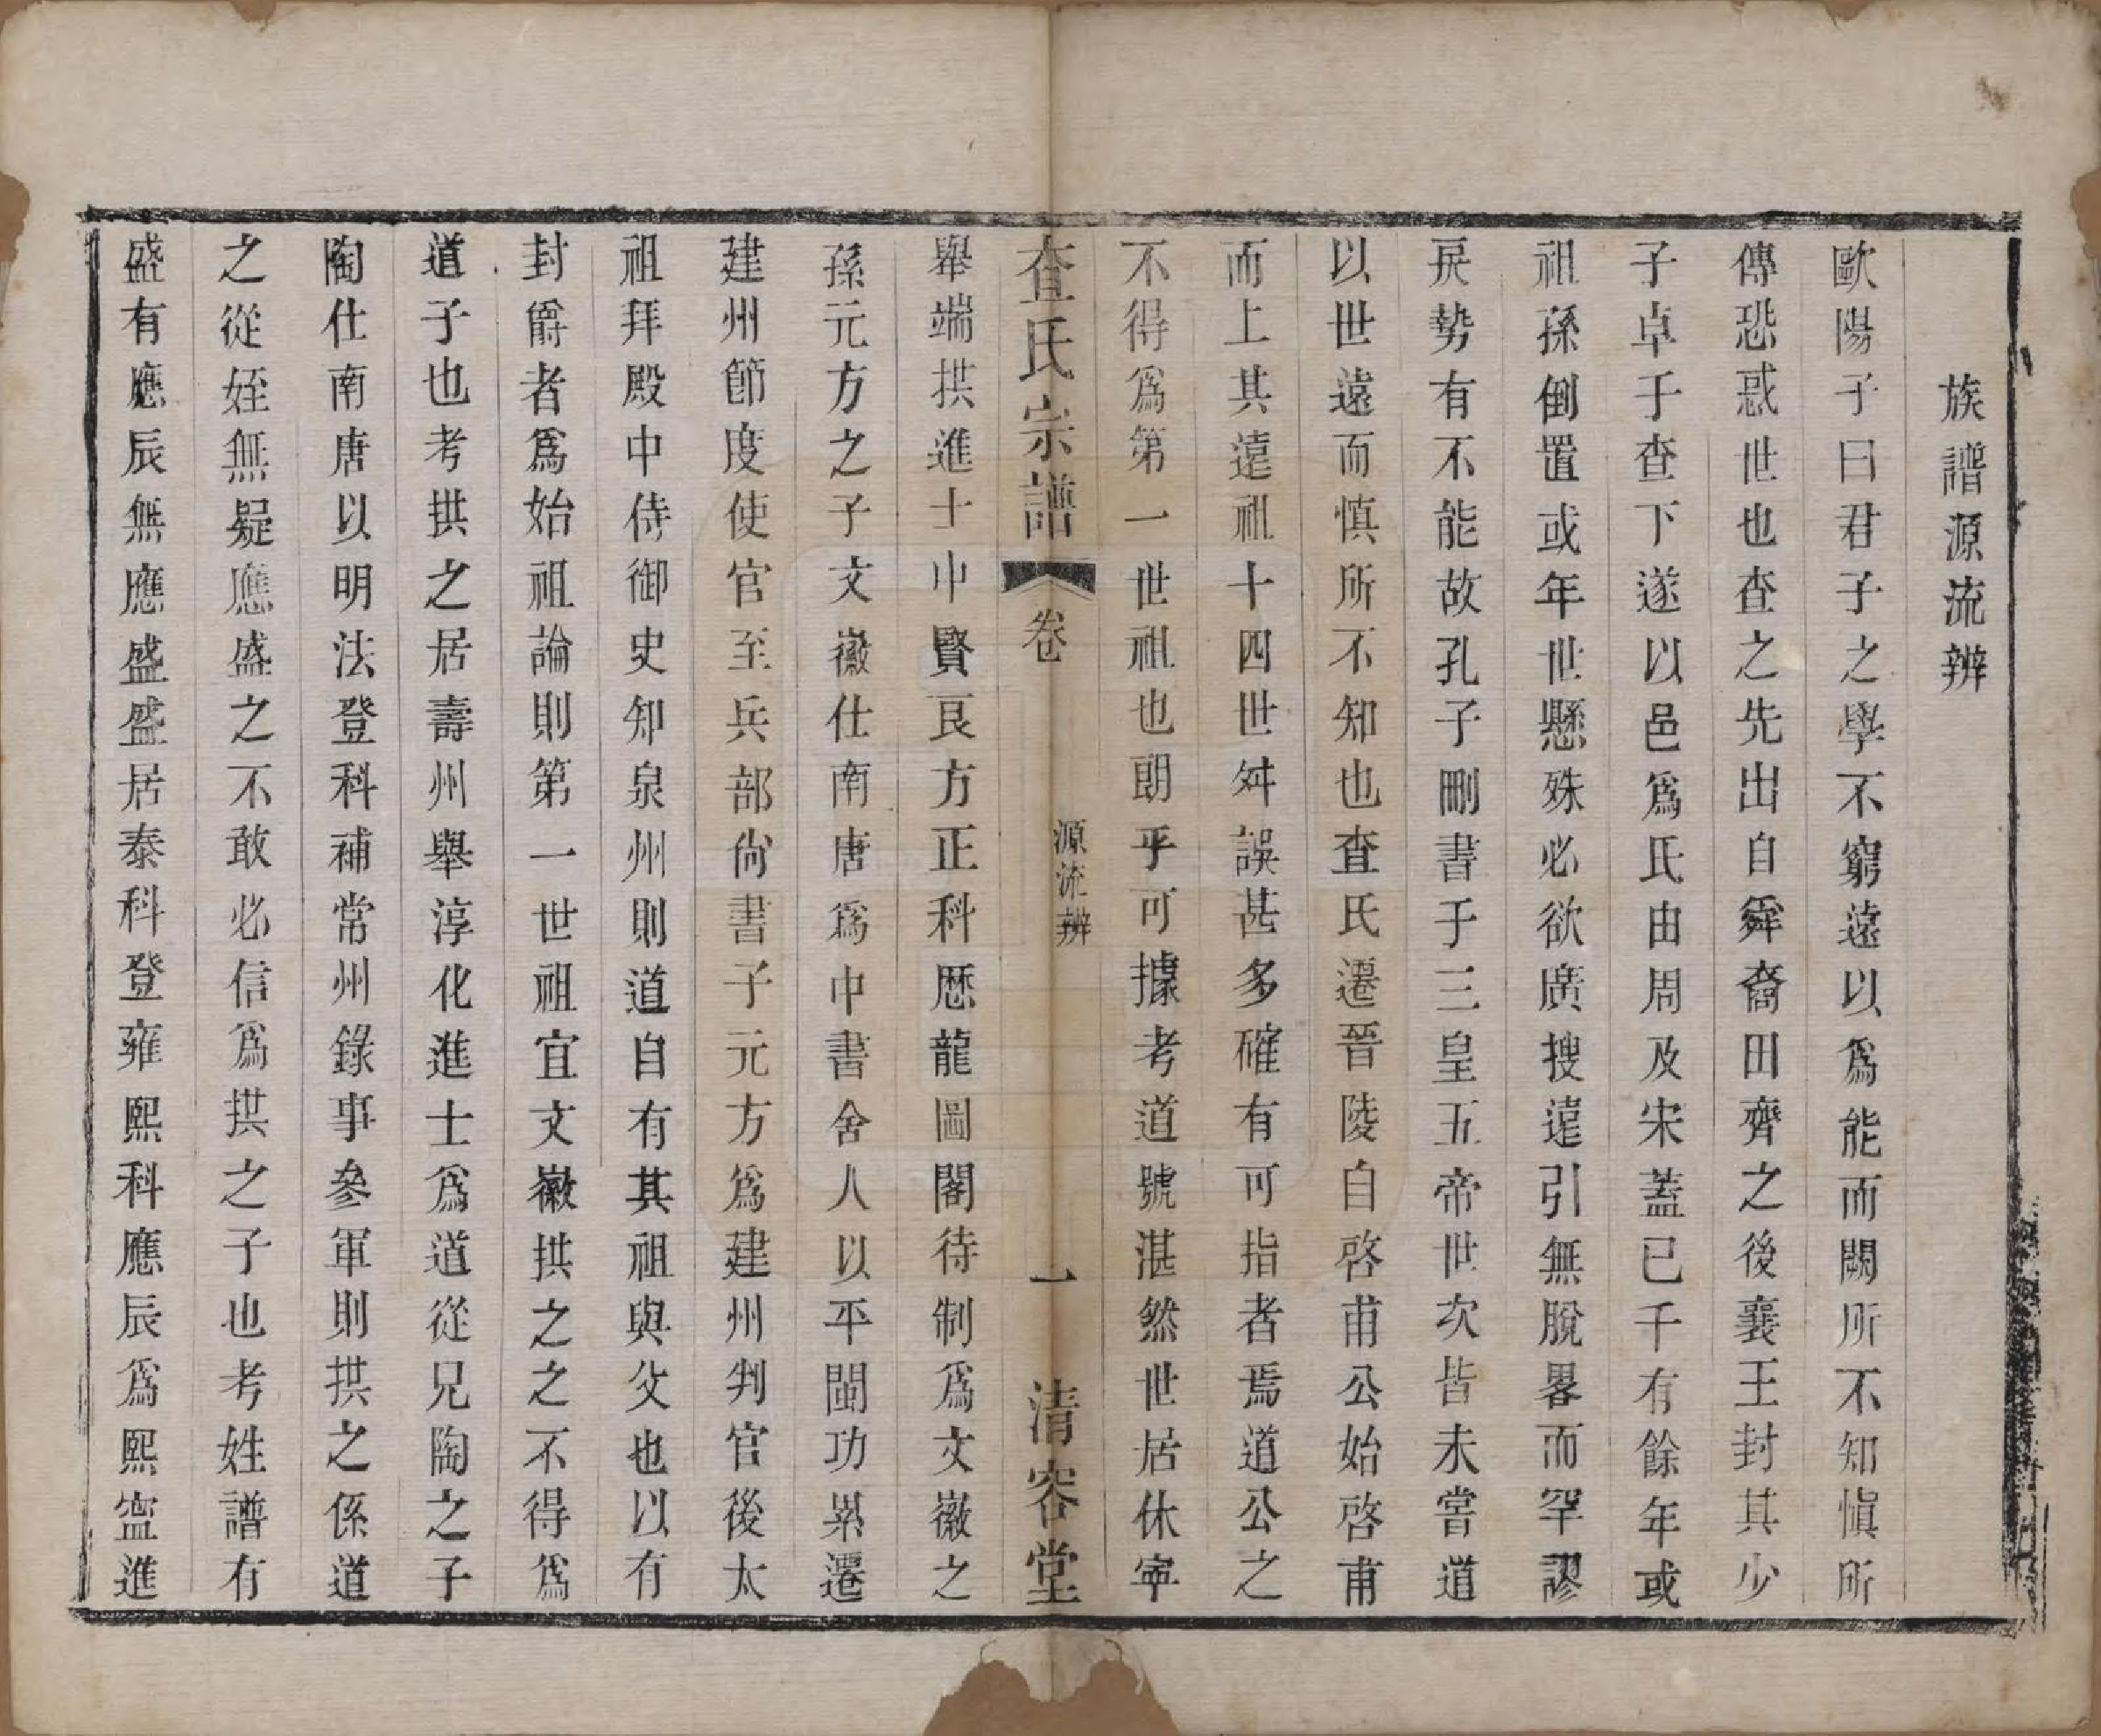 族譜源流辨
歐陽子曰君子之學不窮遠以爲能而闕所不知愼所
傳恐惑世也查之先出自舜裔田齊之後襄王封其少
子卓于查下遂以邑爲氏由周及宋蓋已千有餘年或
祖孫倒置或年世懸殊必欲廣搜遠引無脫畧而罕謬
戾勢有不能故孔子刪書于三皇五帝世次皆未嘗道
以世遠而慎所不知也查氏遷晉陵自啓甫公始啓甫
而上其遠祖十四世舛誤甚多確有可指者焉道公之
不得爲第一世祖也朗乎可據考道號湛然世居休寧
查氏宗譜 卷 源流辨 一 清容堂
舉端拱進士中賢良方正科歷龍圖閣待制爲文徽之
孫元方之子文徽仕南唐爲中書舍人以平閩功累遷
建州節度使官至兵部尙書子元方爲建州判官後太
祖拜殿中侍御史知泉州則道自有其祖與父也以有
封爵者爲始祖論則第一世祖宜文徽拱之之不得爲
道子也考拱之居壽州舉淳化進士爲道從兄陶之子
陶仕南唐以明法登科補常州錄事參軍則拱之係道
之從姪無疑應盛之不敢必信爲拱之子也考姓譜有
盛有應辰無應盛盛居泰科登雍熙科應辰爲熙寍進